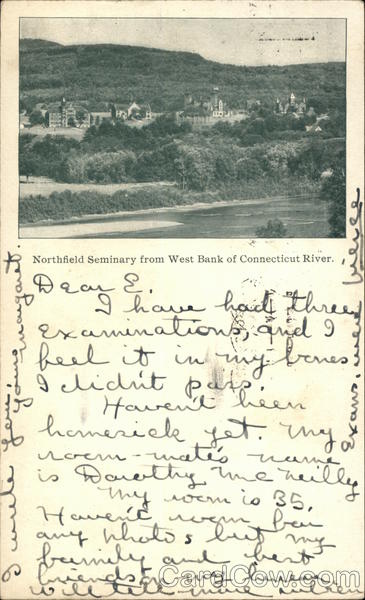 Northfield Seminary from West Bank of Connecticut River.
Dear E.
I have had three
examinations, and I
feel it in my bones
I didn't pass.
Haven't been
homesick yet. My
room-mate's name
is Dorothy McNeilly
My room is 35.
Haven't room for
any photos but my
family and best
friends
will tell more when
I write you.
Yours, Margaret.
Exams. were fierce
CardCow.com